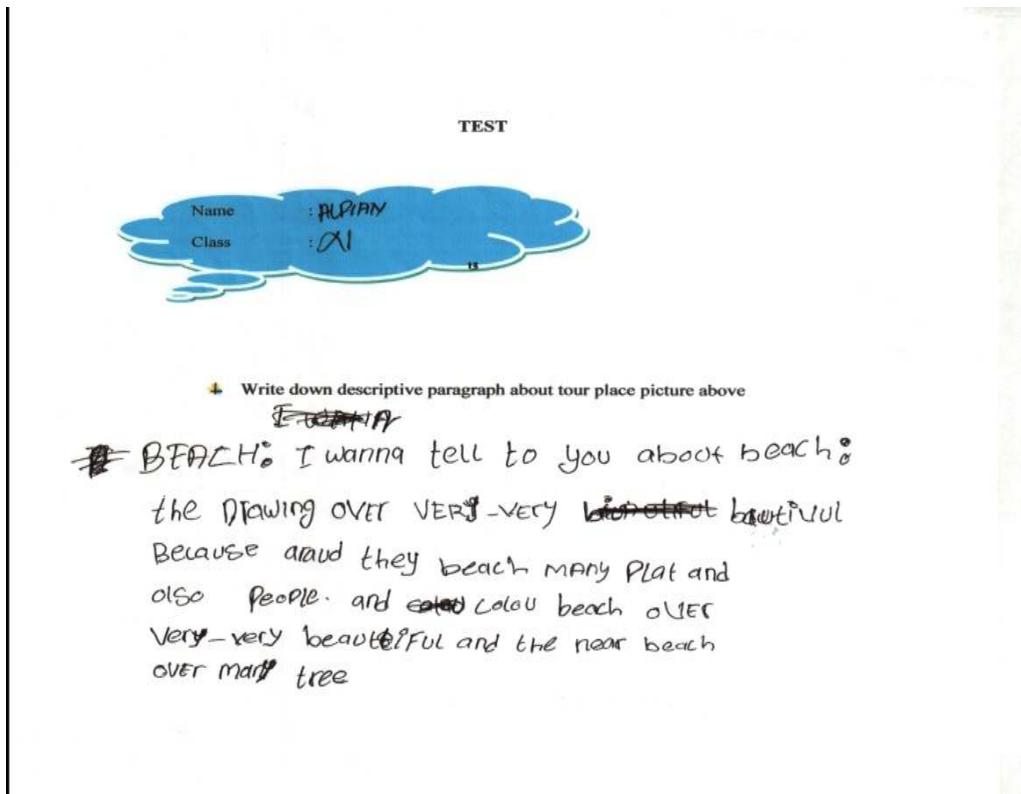 TEST
Name : ALPIAN
Class : XI
13
Write down descriptive paragraph about tour place picture above
BEACH: I wanna tell to you about beach:
the Drawing over VERY-very beautivul
Because araud they beach many Plat and
also People. and colou beach over
Very-very beauteiful and the near beach
over many tree